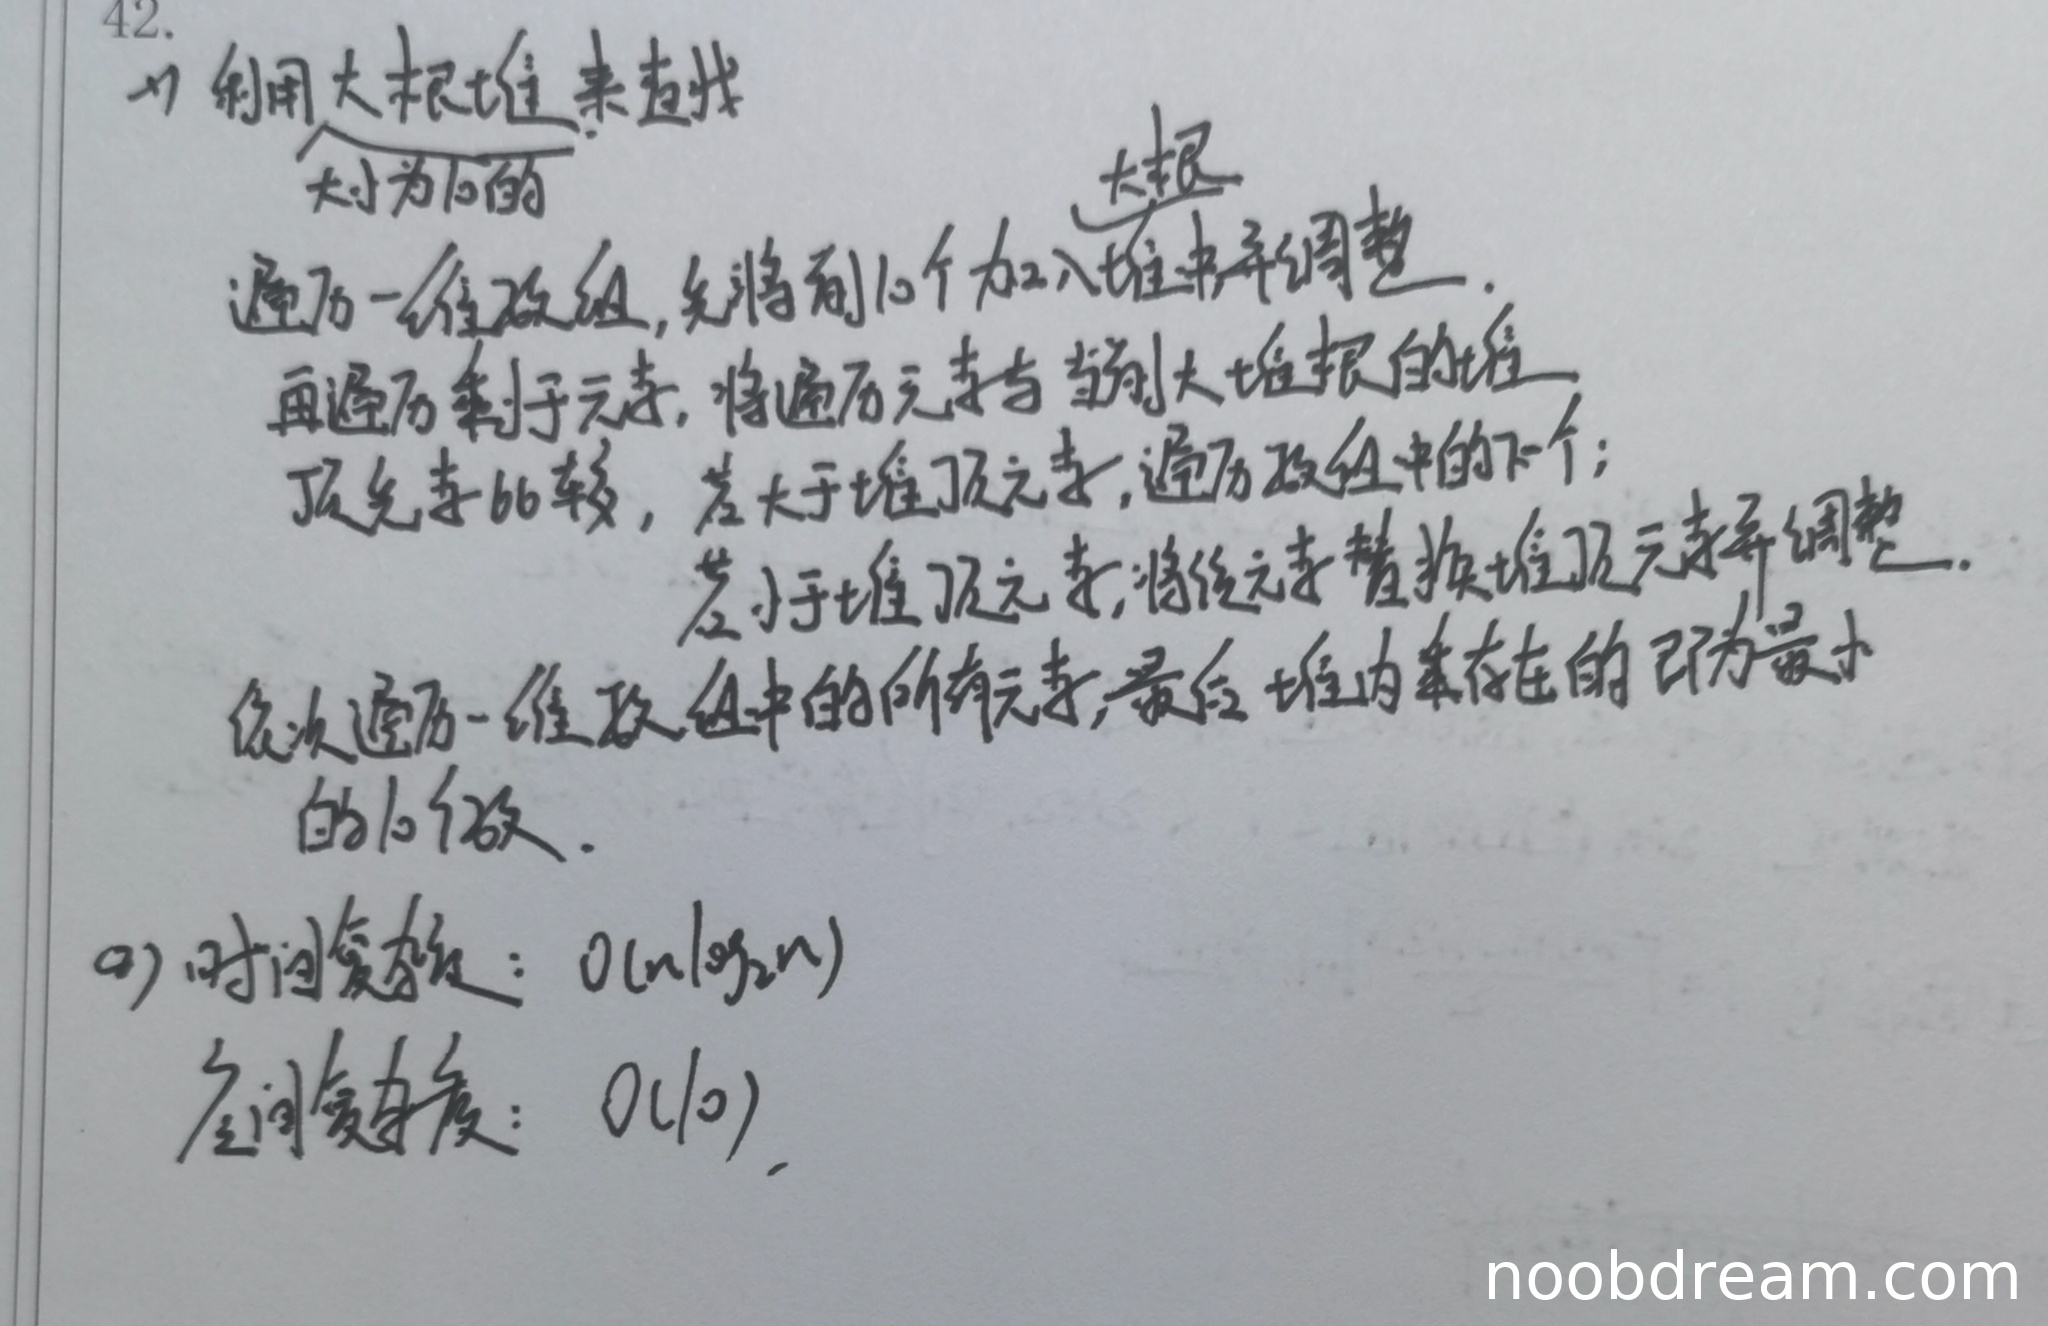 42.
1) 利用大根堆来查找
大小为10的
大根
遍历一维数组,先将前10个加入堆中并调整.
再遍历剩于元素,将遍历元素与当前大堆根的堆
顶元素比较,若大于堆顶元素,遍历数组中的下一个;
若小于堆顶元素,将该元素替换堆顶元素并调整.
依次遍历一维数组中的所有元素,最后堆内存在的即为最小
的10个数.
2) 时间复杂度: O(nlog₂n)
空间复杂度: O(10).
noobdream.com